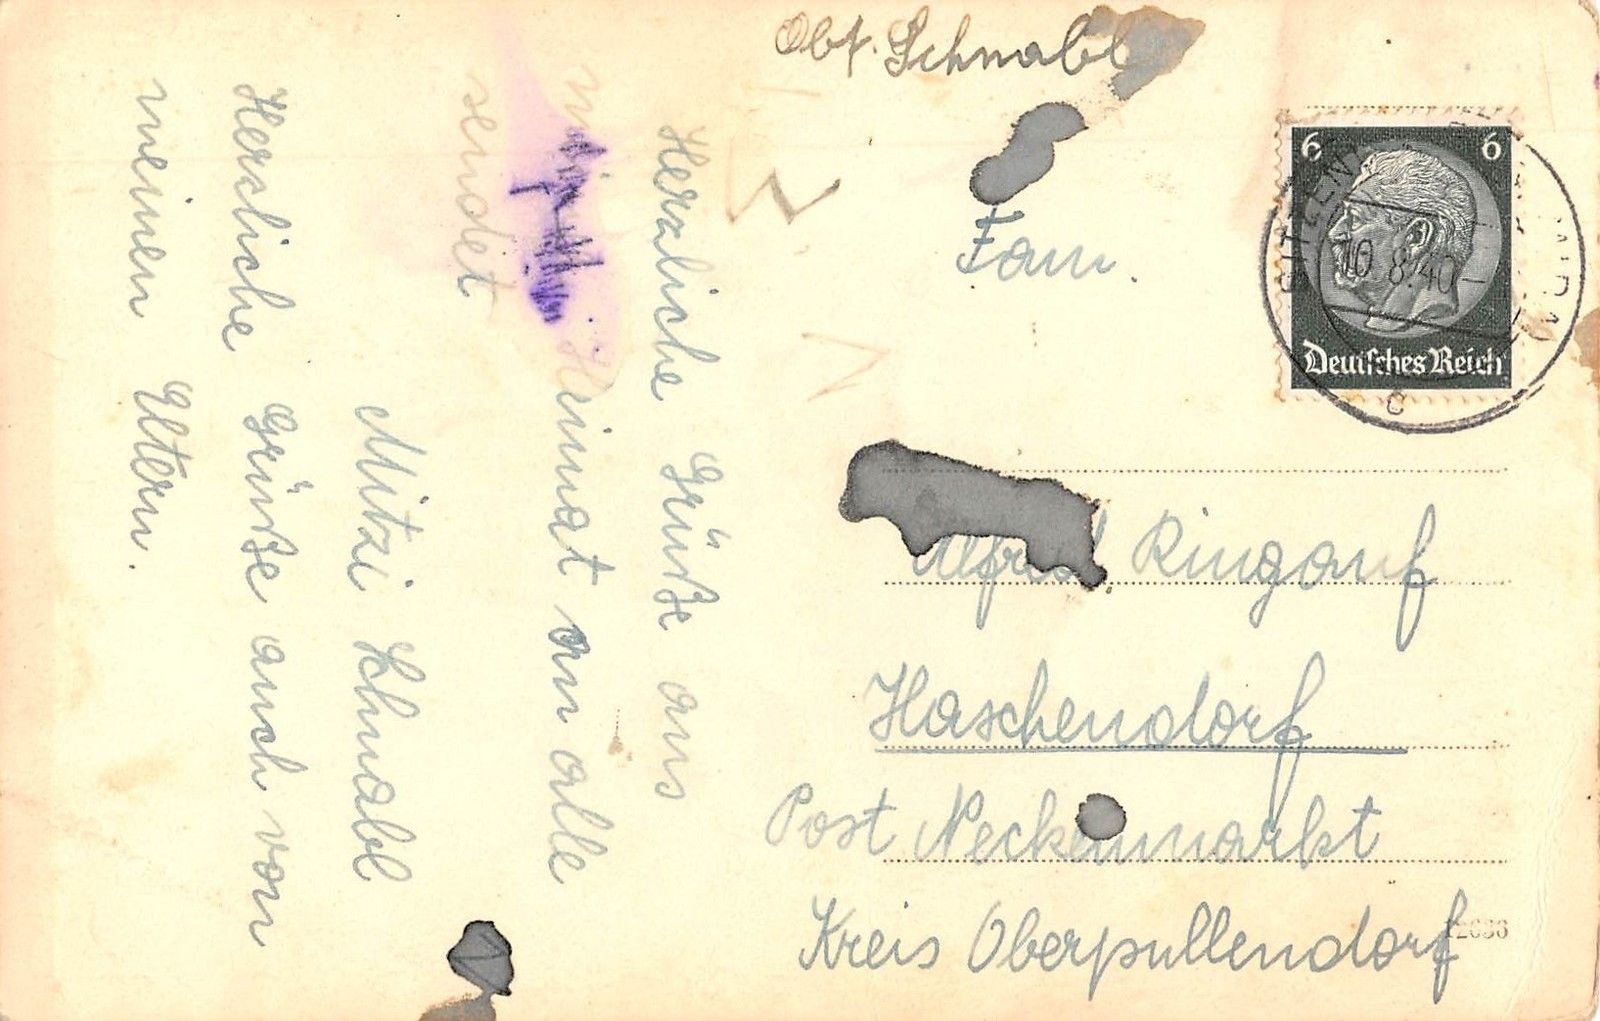 Obf. Schnabl
Herzliche Grüße aus
Heimat an alle
sendet
Mitzi Schnabl
Hersliche Grüße auch von
meinen Eltern.
6 6
10.8.40
Deutsches Reich
c
Fam.
Alfred Ringauf
Haschendorf
Post Neckenmarkt
Kreis Oberpullendorf